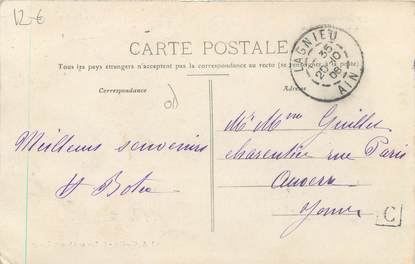 12€
CARTE POSTALE
Tous les pays étrangers n'acceptent pas la correspondance au recto (se renseigner à la poste)
LAGNIEU
AIN
Correspondance
Adresse
Meilleurs souvenirs
Mr Mme Guillet
charentier rue Paris
Auxerre
Yonne
C